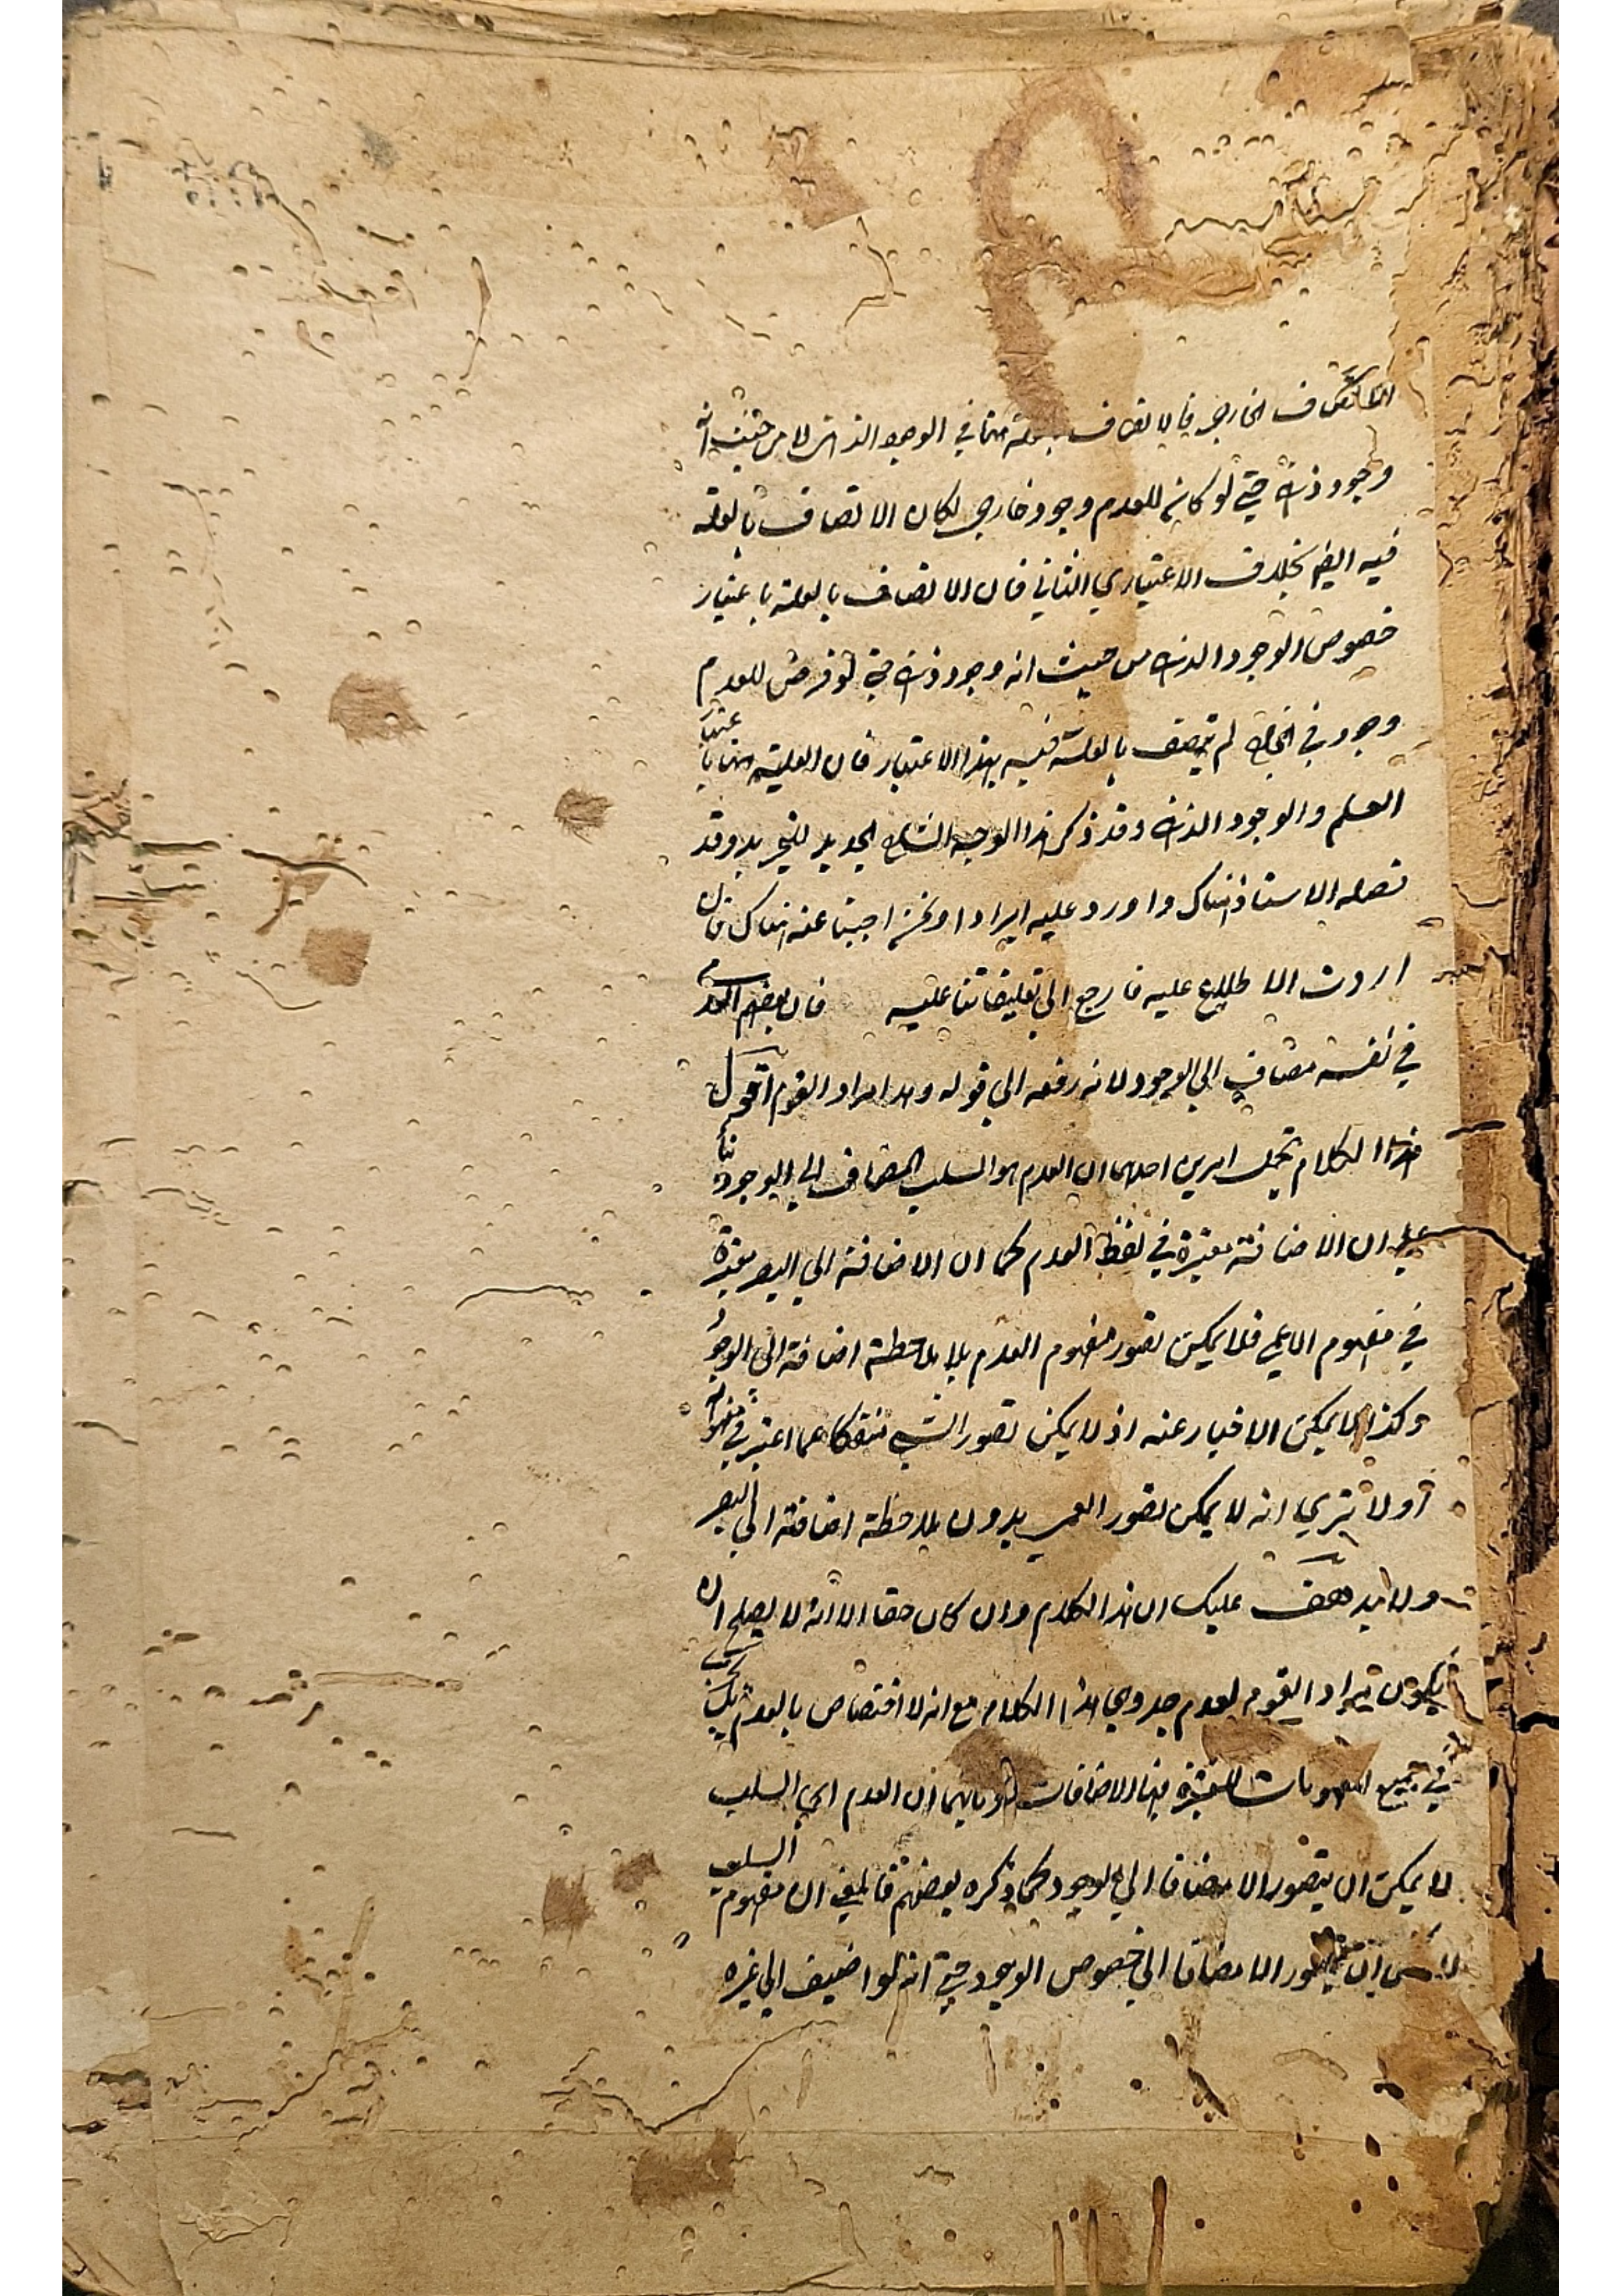 الاتصاف الخارجي فالاتصاف بها في الوجود الذهني لا من حيث انه
وجود ذهني حتى لو كان للعدم وجود خارجي لكان الاتصاف بالعلية
فيه ايضا بخلاف الاعتباري الثاني فان الاتصاف بالعلية باعتبار
خصوص الوجود الذهني من حيث انه وجود ذهني حتى لو فرض للعدم
وجود في الخارج لم يتصف بالعلية فيه بهذا الاعتبار فان العلية هنا باعتبار
العلم والوجود الذهني وقد ذكر هذا الوجه الشارح الجديد للتجريد وقد
نصله الاستاذ هناك واورد عليه ايرادا ونحن اجبنا عنه هناك فان
اردت الاطلاع عليه فارجع الى تعليقاتنا عليه قال بعضهم العدم
في نفسه مضاف الي الوجود لانه رفعه الي قوله وهذا مراد القوم اقول
هذا الكلام يحتمل امرين احدهما ان العدم هو السلب المضاف الي الوجود بناء
علي ان الاضافة معتبرة في لفظ العدم كما ان الاضافة الي البصر معتبرة
في مفهوم الاعمي فلا يمكن تصور مفهوم العدم بلا ملاحظة اضافة الي الوجود
وكذا لا يمكن الاخبار عنه اذ لا يمكن تصور الشي منفكا عما اعتبر في مفهومه
أولا تري انه لا يمكن تصور العمي بدون ملاحظة اضافته الي البصر
ولا يذهب عليك ان هذا الكلام وان كان حقا الا انه لا يصلح ان
يكون مراد القوم لعدم جدوي هذا الكلام مع انه لا اختصاص بالعدم بل يجري
في جميع المفهومات المعتبرة فيها الاضافات وثانيهما ان العدم اي السلب
لا يمكن ان يتصور الا مضافا الي الوجود كما ذكره بعضهم فالمعني ان مفهوم السلب
لا يمكن ان يتصور الا مضافا الي خصوص الوجود حتى انه لو اضيف الي غيره